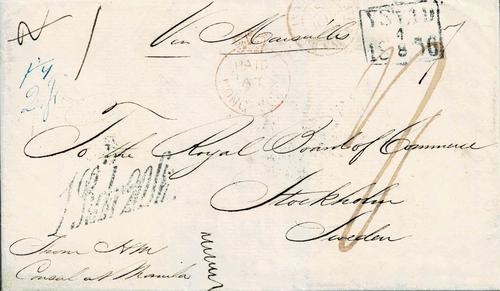 Via Marseilles
YSTAD
4
8
1856
PAID
AT
HONG KONG
To the Royal Board of Commerce
Stockholm
Sweden
From HM
Consul at Manila